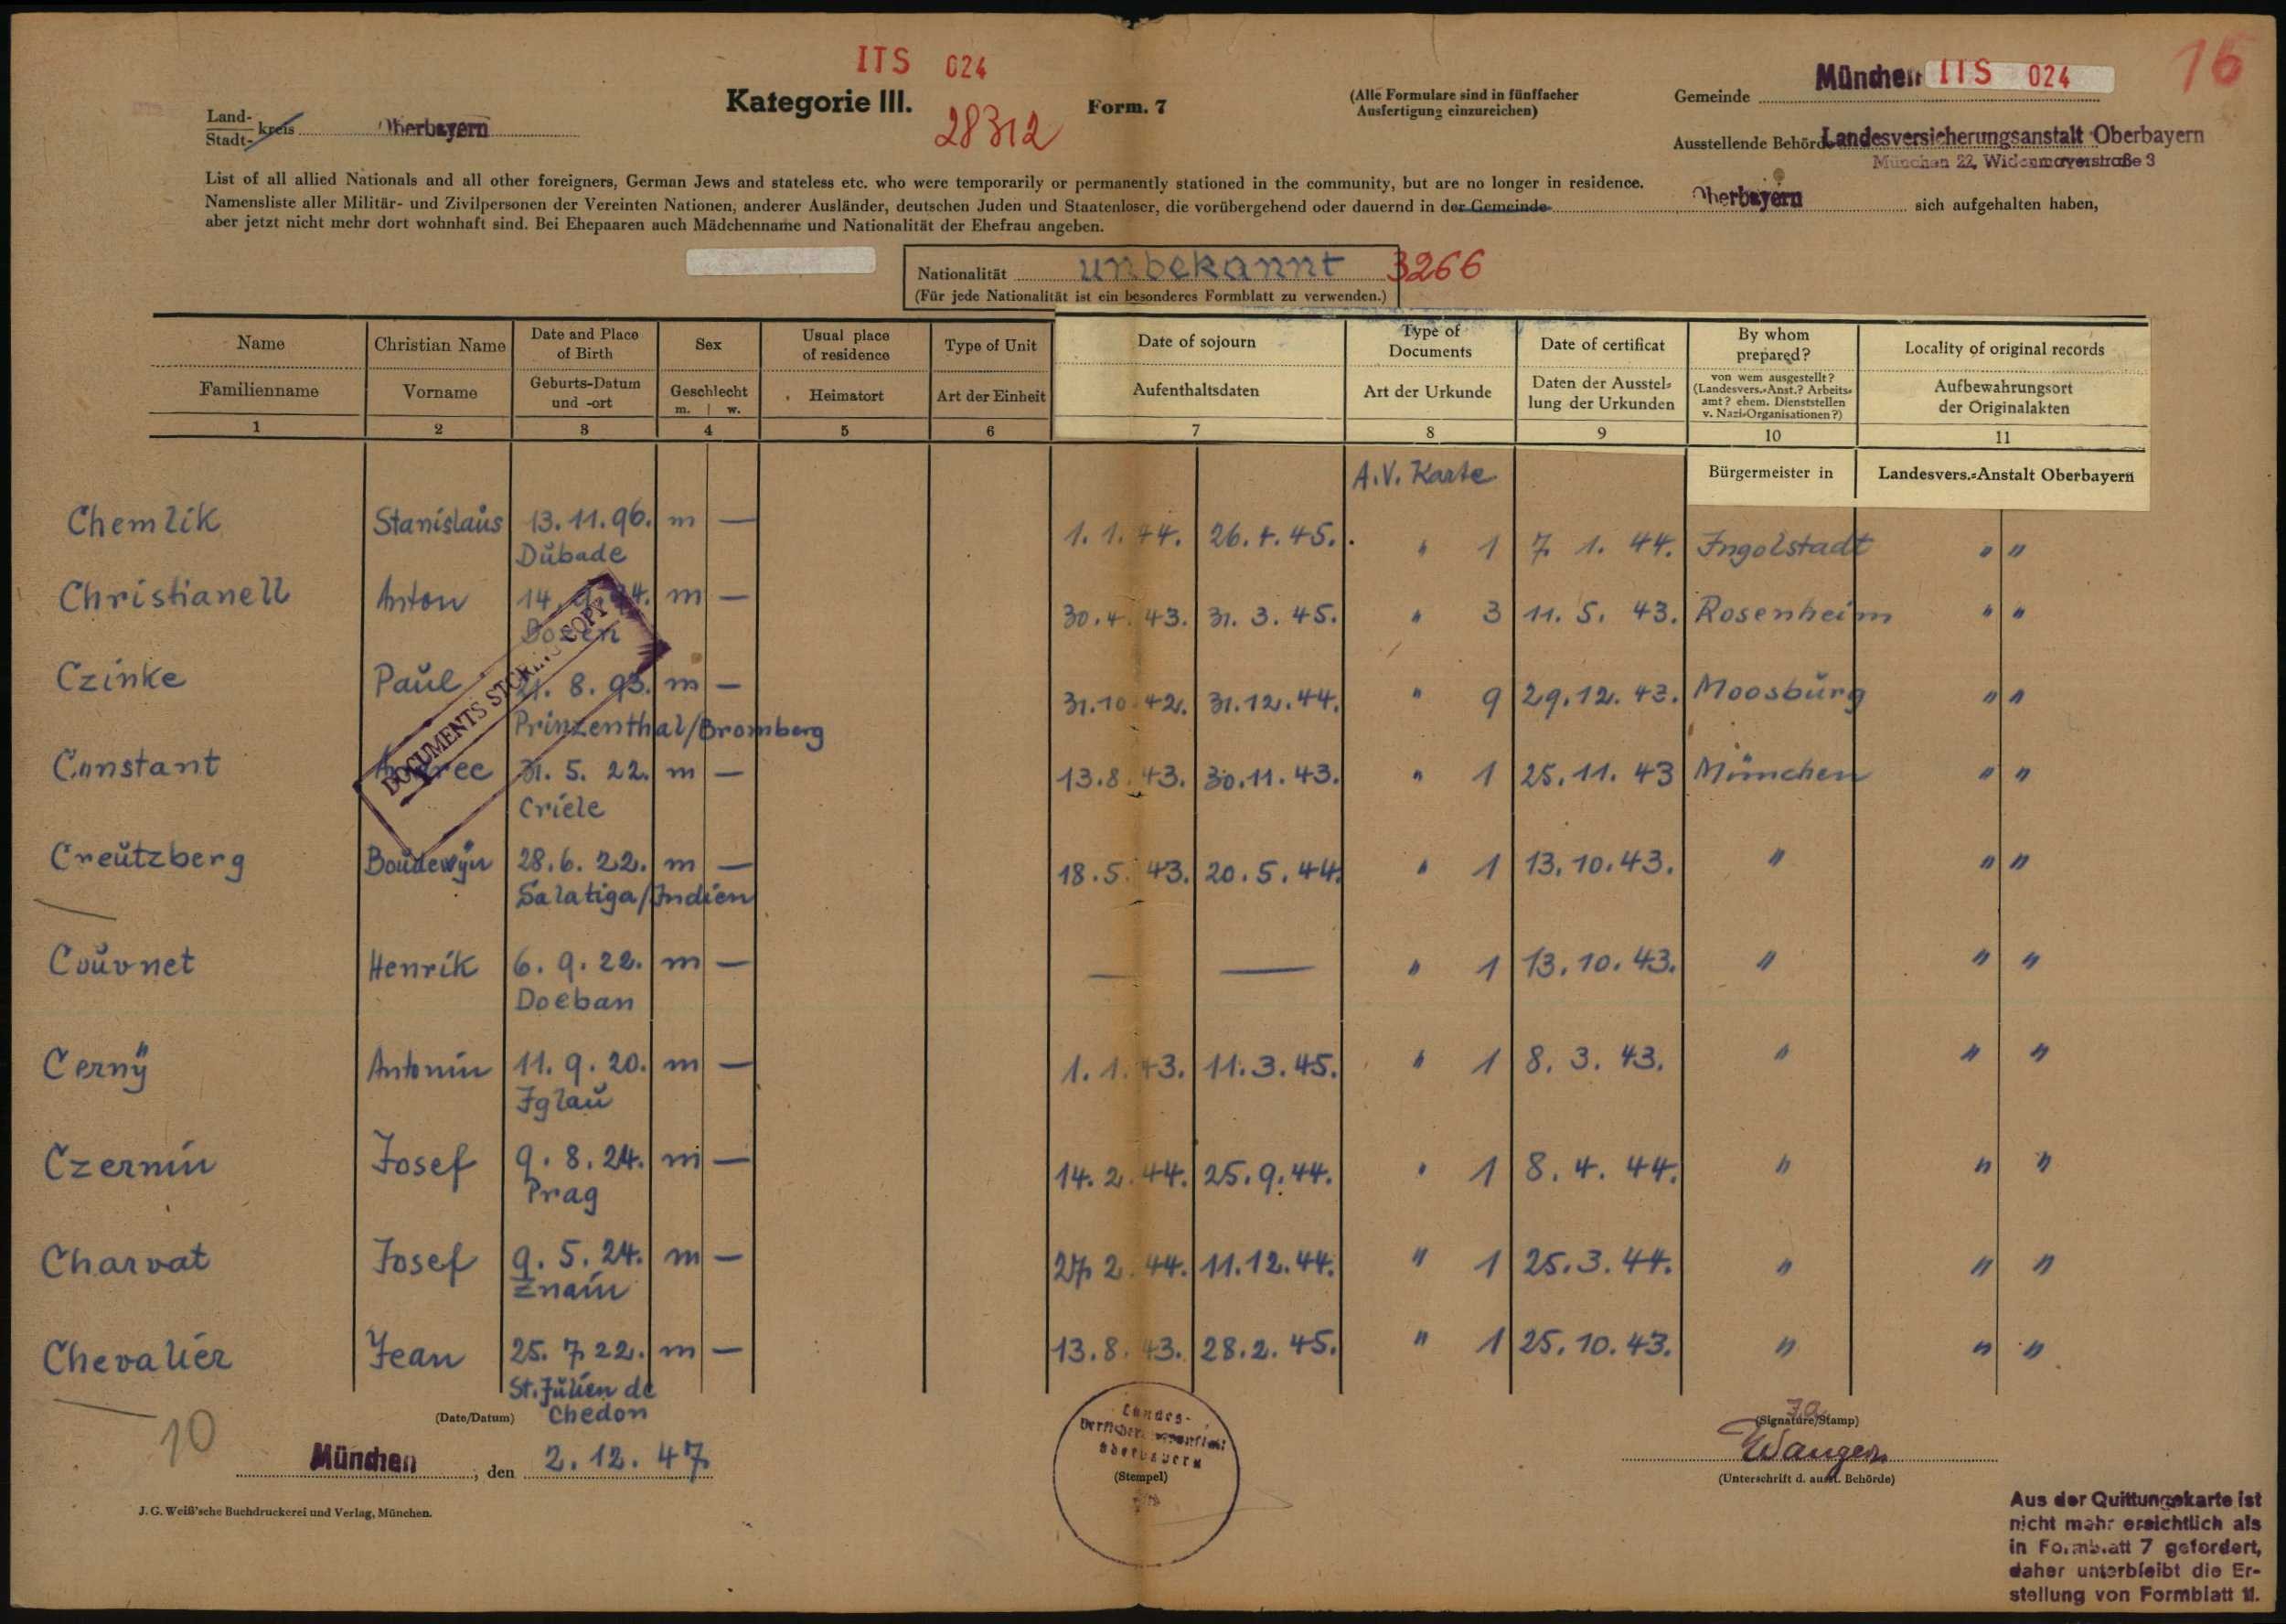 ITS 024
München ITS 024
16
Kategorie III.
Form. 7
28312
(Alle Formulare sind in fünffacher
Ausfertigung einzureichen)
Gemeinde
Land-
Stadt- kreis Oberbayern
Ausstellende Behörde Landesversicherungsanstalt Oberbayern
München 22, Widenmayerstraße 3
List of all allied Nationals and all other foreigners, German Jews and stateless etc. who were temporarily or permanently stationed in the community, but are no longer in residence.
Namensliste aller Militär- und Zivilpersonen der Vereinten Nationen, anderer Ausländer, deutschen Juden und Staatenloser, die vorübergehend oder dauernd in der Gemeinde Oberbayern sich aufgehalten haben,
aber jetzt nicht mehr dort wohnhaft sind. Bei Ehepaaren auch Mädchenname und Nationalität der Ehefrau angeben.
Nationalität unbekannt 3266
(Für jede Nationalität ist ein besonderes Formblatt zu verwenden.)
Name Christian Name Date and Place of Birth Sex Usual place of residence Type of Unit Date of sojourn Type of Documents Date of certificat By whom prepared? Locality of original records
Familienname Vorname Geburts-Datum und -ort Geschlecht m. w. Heimatort Art der Einheit Aufenthaltsdaten Art der Urkunde Daten der Ausstel- lung der Urkunden von wem ausgestellt? (Landesvers.-Anst.? Arbeits- amt? ehem. Dienststellen v. Nazi-Organisationen?) Aufbewahrungsort der Originalakten
1 2 3 4 5 6 7 8 9 10 11
A.V. Karte Bürgermeister in Landesvers.-Anstalt Oberbayern
Chemlik Stanislaus 13.11.96. m — 1.1.44. 26.4.45. " 1 7.1.44. Ingolstadt " "
Dubade
Christianell Anton 14. m — 30.4.43. 31.3.45. " 3 11.5.43. Rosenheim " "
Bozen
Czinke Paul 21.8.93. m — 31.10.42. 31.12.44. " 9 29.12.43. Moosburg " "
Prinzenthal/Bromberg
Constant Andree 31.5.22. m — 13.8.43. 30.11.43. " 1 25.11.43 München " "
Criele
Creutzberg Boudewijn 28.6.22. m — 18.5.43. 20.5.44. " 1 13.10.43. " " "
Salatiga/Indien
Couvnet Henrik 6.9.22. m — — — " 1 13.10.43. " " "
Doeban
Cerny Antonin 11.9.20. m — 1.1.43. 11.3.45. " 1 8.3.43. " " "
Iglau
Czernin Josef 9.8.24. m — 14.2.44. 25.9.44. " 1 8.4.44. " " "
Prag
Charvat Josef 9.5.24. m — 27.2.44. 11.12.44. " 1 25.3.44. " " "
Znaim
Chevalier Jean 25.7.22. m — 13.8.43. 28.2.45. " 1 25.10.43. " " "
St. Julien de
Chedon
DOCUMENTS COPY
10
(Date/Datum)
München, den 2.12.47.
Landes-
Oberbayern
(Stempel)
(Signature/Stamp)
(Unterschrift d. ausst. Behörde)
J. G. Weiß'sche Buchdruckerei und Verlag, München.
Aus der Quittungskarte ist
nicht mehr ersichtlich als
in Formblatt 7 gefordert,
daher unterbleibt die Er-
stellung von Formblatt 11.